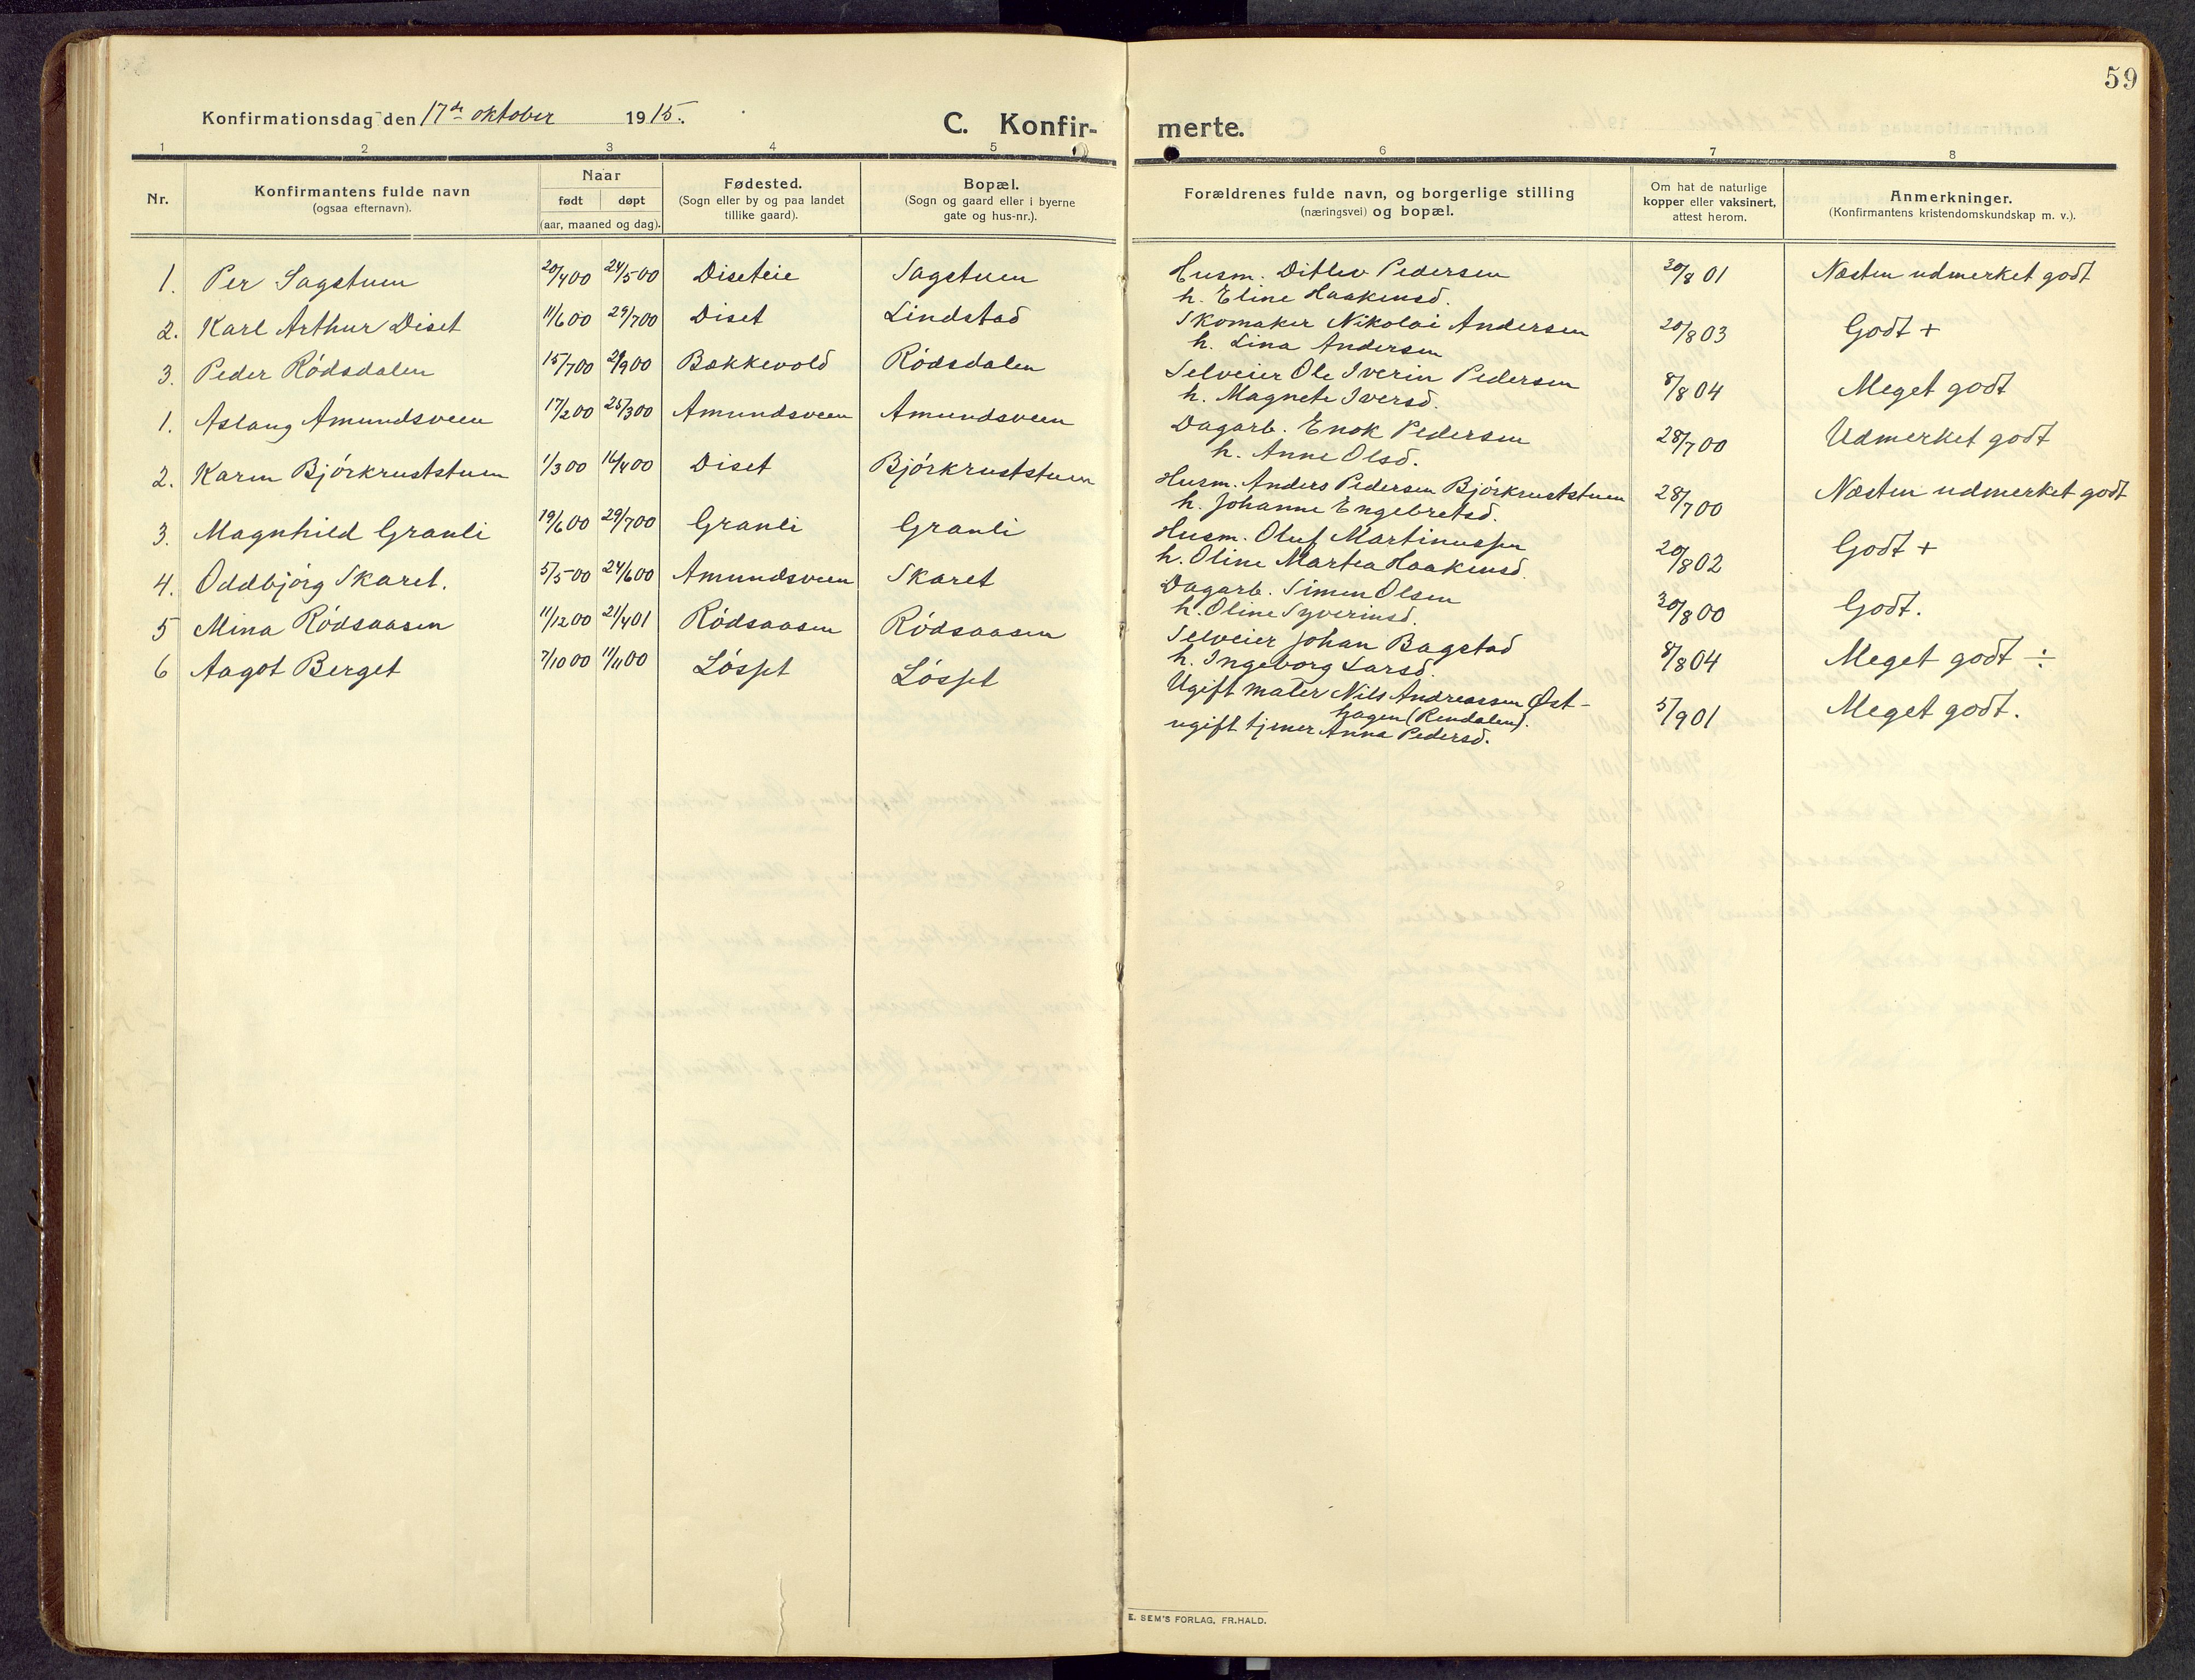 59
Konfirmationsdag den 17de oktober 1915.
C. Konfir- merte.
1 2 3 4 5 6 7 8
Nr. Konfirmantens fulde navn (ogsaa efternavn). Naar født døpt (aar, maaned og dag). Fødested. (Sogn eller by og paa landet tillike gaard). Bopæl. (Sogn og gaard eller i byerne gate og hus-nr.). Forældrenes fulde navn, og borgerlige stilling (næringsvei) og bopæl. Om hat de naturlige kopper eller vaksinert, attest herom. Anmerkninger. (Konfirmantens kristendomskundskap m. v.).
1. Per Sagstuen 20/4 00 24/5 00 Diseteie Sagstuen Husm. Ditlev Pedersen 30/8 01 Næsten udmerket godt
h. Eline Haakensd.
2. Karl Arthur Diset 11/6 00 29/7 00 Diset Lindstad Skomaker Nikolai Andersen 20/8 03 Godt +
h. Lina Andersen
3. Peder Rödsdalen 15/7 00 2/9 00 Bækkevold Rödsdalen Selveier Ole Iverin Pedersen 8/8 04 Meget godt
h. Magnete Iversd.
1. Aslaug Amundsveen 17/2 00 25/3 00 Amundsveen Amundsveen Dagarb. Enok Pedersen 28/7 00 Udmerket godt
h. Anne Olsd.
2. Karen Björkruststuen 1/3 00 16/4 00 Diset Björkruststuen Husm. Anders Pedersen Björkruststuen 28/7 00 Næsten udmerket godt
h. Johanne Engebretsd.
3. Magnhild Granli 19/6 00 29/7 00 Granli Granli Husm. Oluf Martinussen 20/8 02 Godt +
h. Oline Martea Haakensd.
4. Oddbjörg Skaret. 5/5 00 24/6 00 Amundsveen Skaret Dagarb. Simen Olsen 30/8 00 Godt.
h. Oline Syverinsd.
5 Mina Rödsaasen 11/12 00 21/4 01 Rödsaasen Rödsaasen Selveier Johan Bagstad 8/8 04 Meget godt ÷
h. Ingeborg Larsd.
6 Aagot Berget 7/10 00 11/11 00 Lösset Lösset Ugift maler Nils Andreassen Öst- 5/9 01 Meget godt.
hagen (Rendalen).
ugift tjener Anna Pedersd.
E. SEM'S FORLAG, FR.HALD.